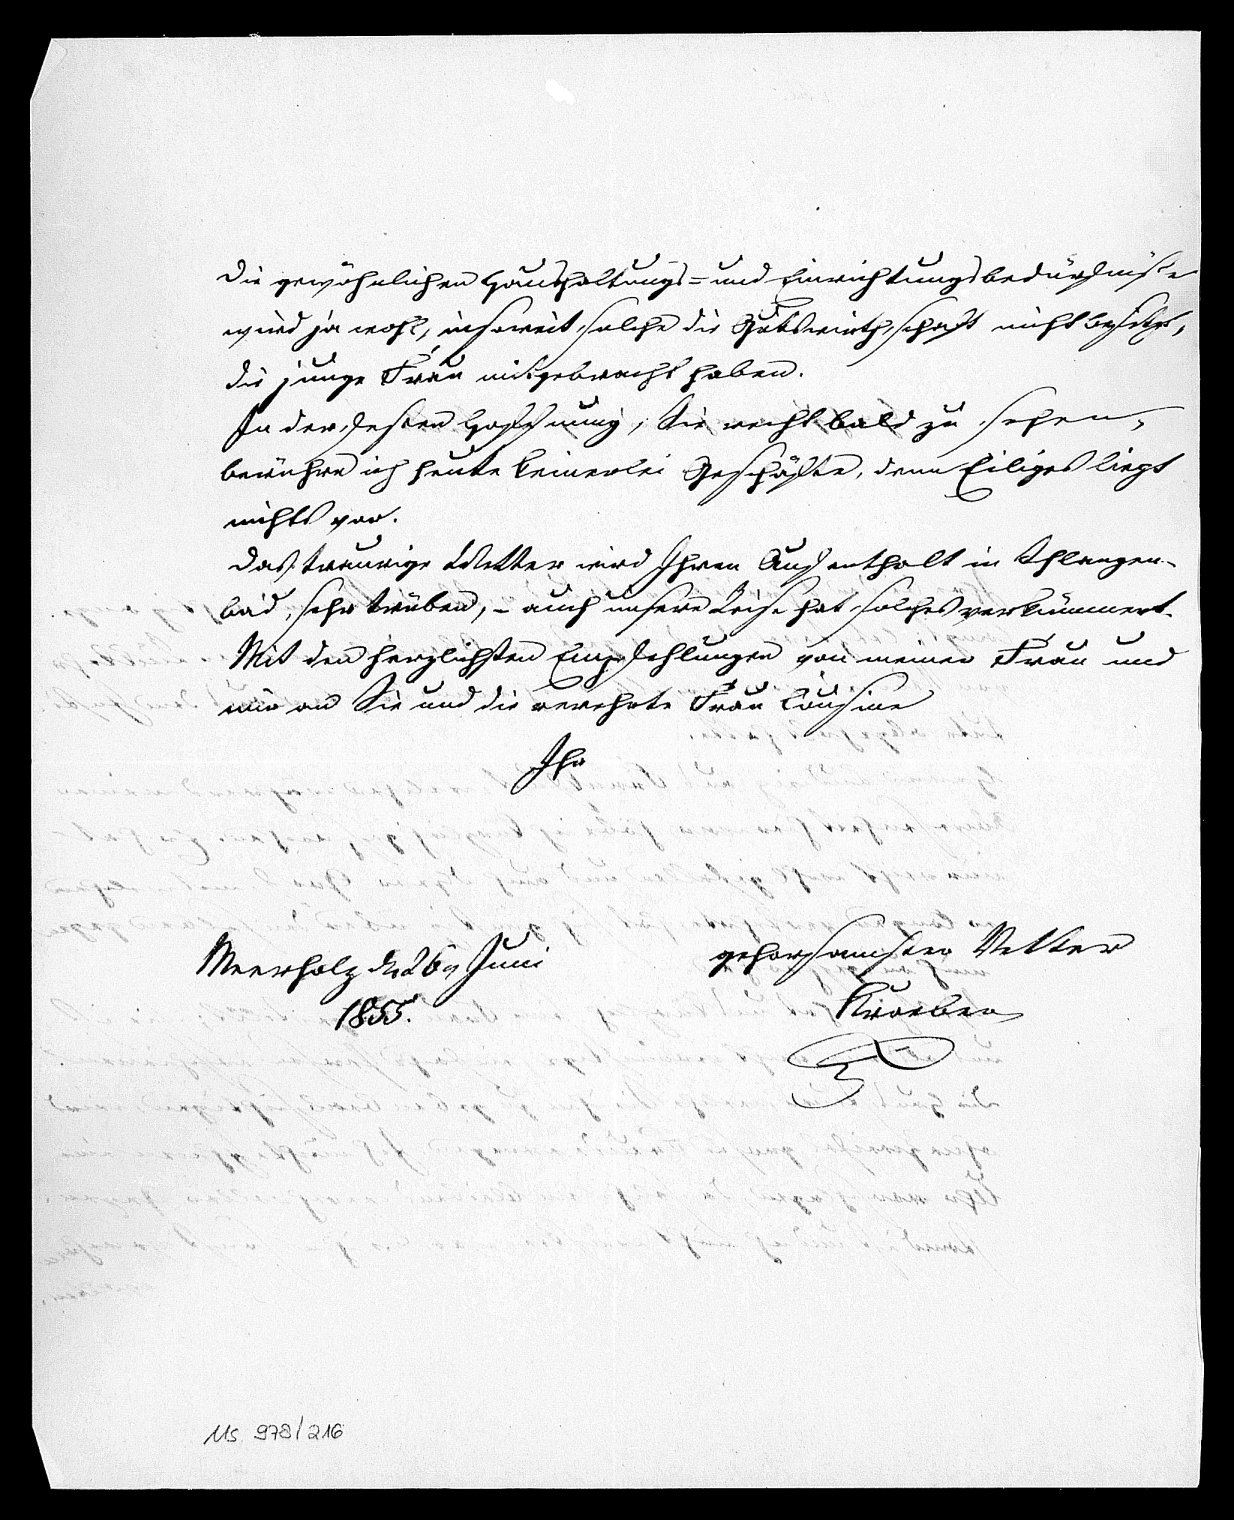 die gewöhnlichen Haushaltungs- und Einrichtungsbedürfniße
wird ja wohl, insoweit solche die Gutswirthschaft nicht besitzt,
die junge Frau mitgebracht haben.
In der festen Hoffnung, Sie recht bald zu sehen,
berühre ich heute keinerlei Geschäfte, denn Eiliges liegt
nichts vor.
Das traurige Wetter wird Ihren Aufenthalt in Schlangen-
bad sehr trüben, - auch unsere Reise hat solches verkümmert.
Mit den herzlichsten Empfehlungen von meiner Frau und
mir an Sie und die verehrte Frau Cousine
Ihr
gehorsamster Vetter
Meerholz d. 26n Juni
1855.
Ms 978/216